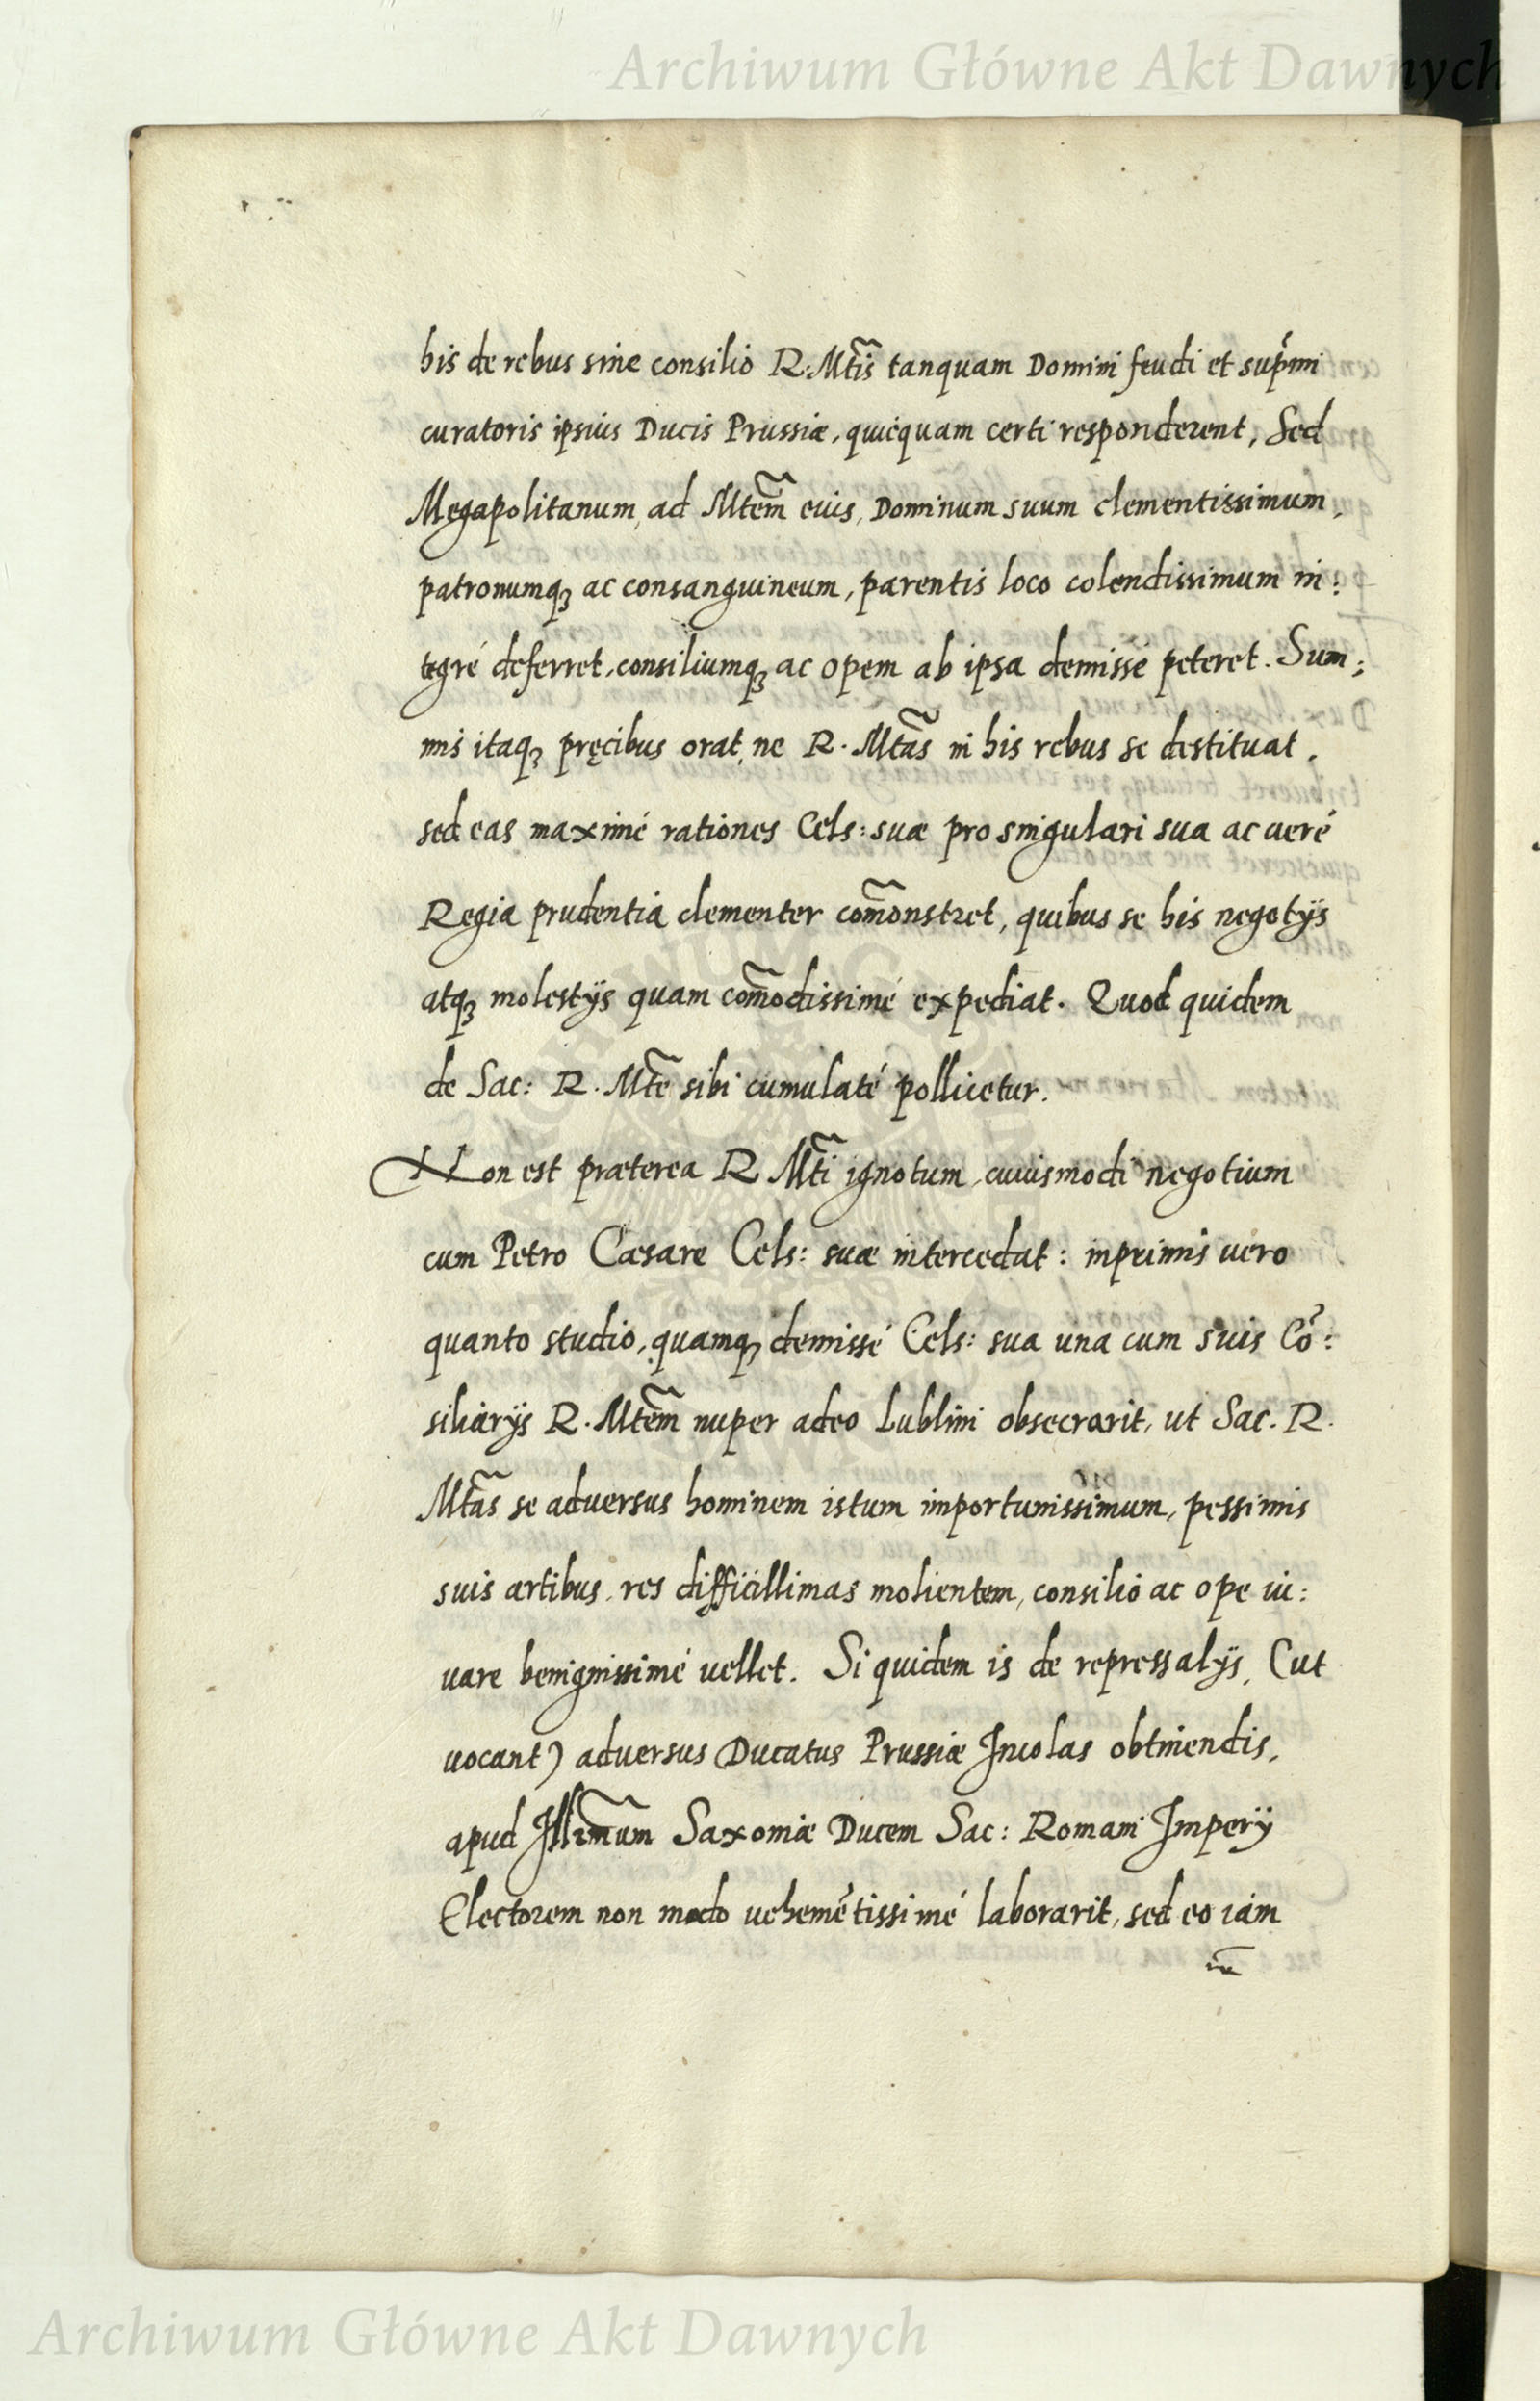 Archiwum Główne Akt Dawnych
his de rebus sine consilio R. Mtis tanquam Domini feudi et supmi
curatoris ipsius Ducis Prussiæ, quicquam certi responderent, Sed
Megapolitanum, ad Mtem eius, Dominum suum clementissimum,
patronumq; ac consanguineum, parentis loco colendissimum in:
tegré deferret, consiliumq; ac opem ab ipsa demissé peteret. Sum:
mis itaq; pręcibus orat, ne R. Mtas in his rebus se destituat,
sed eas maximé rationes Cels: suæ pro singulari sua ac veré
Regia prudentia clementer com̃onstret, quibus se his negotijs
atq; molestijs quam com̃odissimé expediat. Quod quidem
de Sac: R. Mte sibi cumulaté pollicetur.
Non est præterea R Mti ignotum, cuiusmodi negotium
cum Petro Cæsare Cels: suæ intercedat: inprimis vero
quanto studio, quamq; demissé Cels: sua una cum suis Cõ:
siliarijs R. Mtem nuper adeo Lublini obsecrarit, ut Sac. R.
Mtas se adversus hominem istum importunissimum, pessimis
suis artibus, res difficillimas molientem, consilio ac ope iu:
uare benignissimé uellet. Si quidem is de repressalijs, (ut
uocant) adversus Ducatus Prussiæ Incolas obtinendis,
apud Illimum Saxoniæ Ducem Sac: Romani Imperij
Electorem non modo uehemẽtissimé laborarit, sed eo iam
Archiwum Główne Akt Dawnych